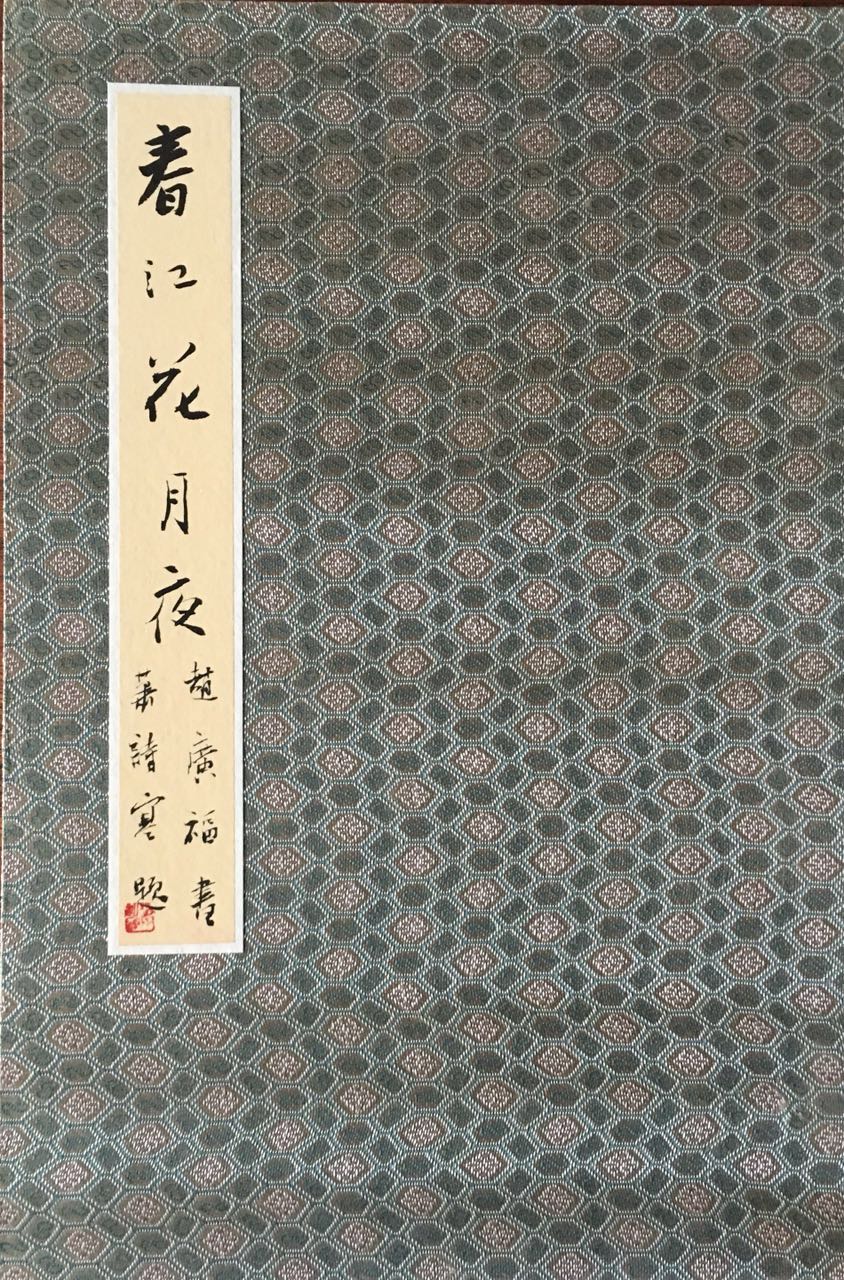 春江花月夜
趙廣福書
萧詩寒題